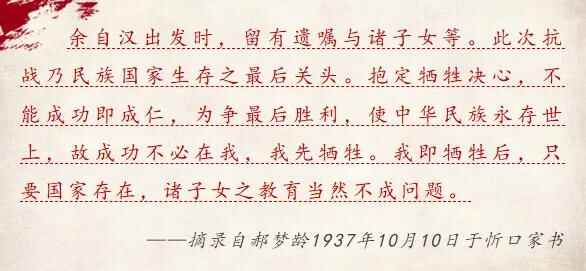 余自汉出发时，留有遗嘱与诸子女等。此次抗
战乃民族国家生存之最后关头。抱定牺牲决心，不
能成功即成仁，为争最后胜利，使中华民族永存世
上，故成功不必在我，我先牺牲。我即牺牲后，只
要国家存在，诸子女之教育当然不成问题。
——摘录自郝梦龄1937年10月10日于忻口家书